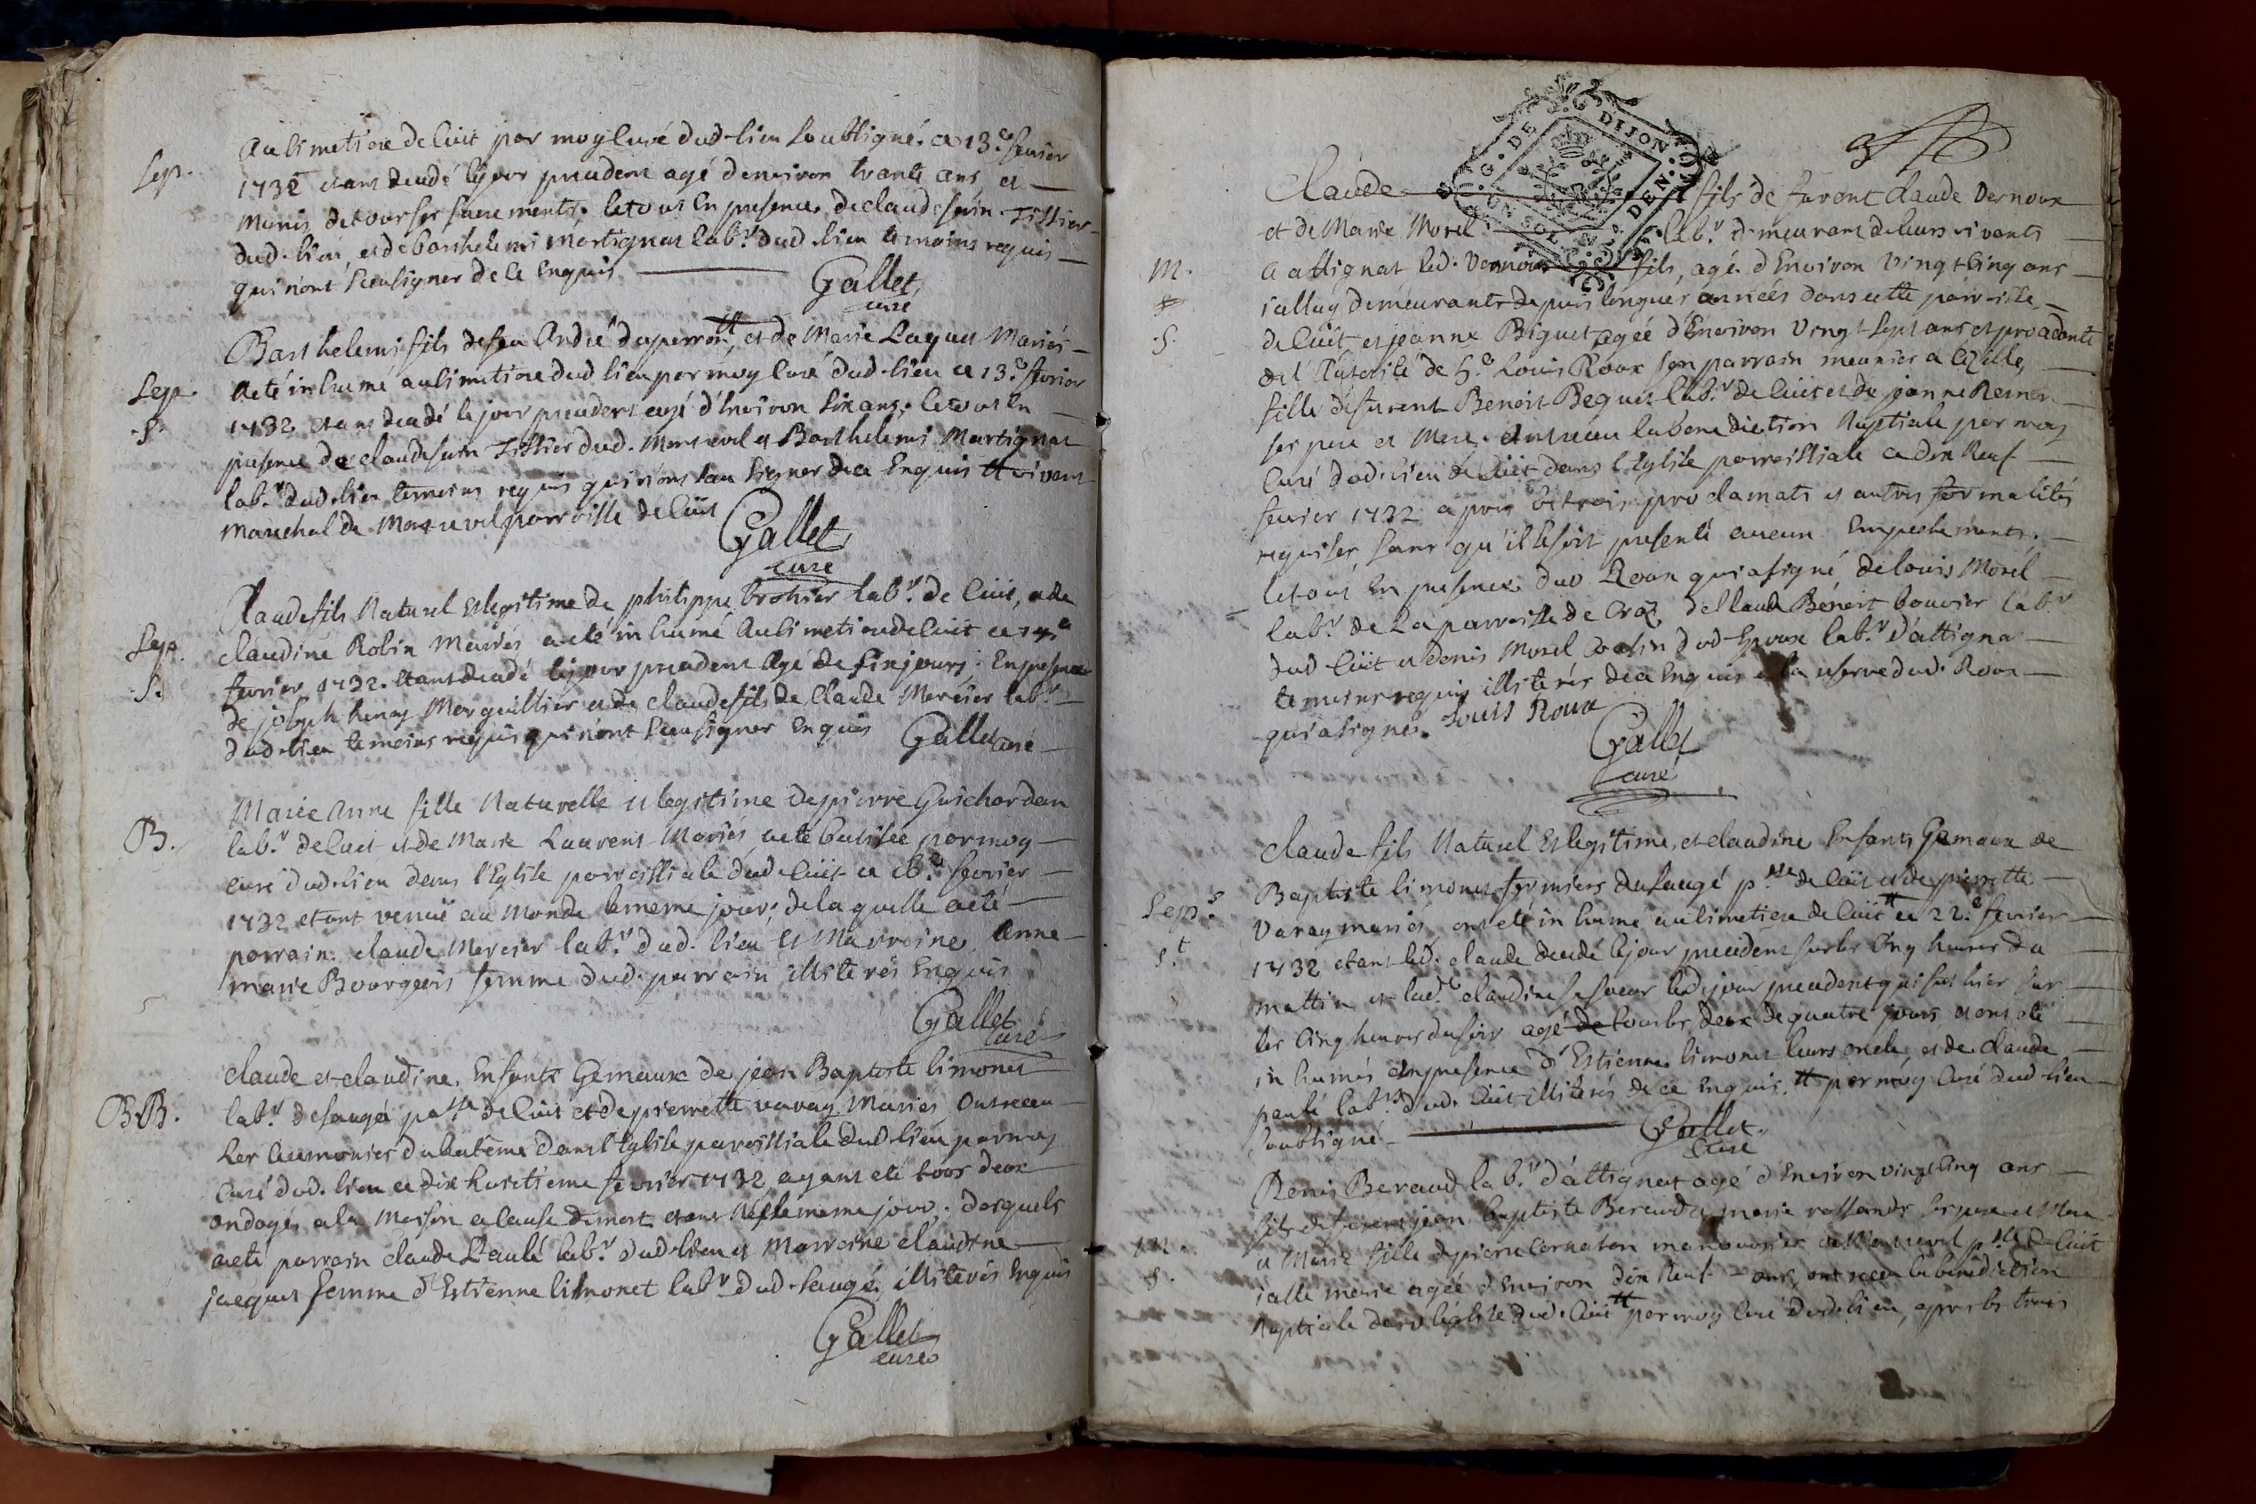 Sep.
au Cimetiere de Cuit par moy Curé dud. lieu soubsigné. ce 13.e fevrier
1732 etant decedé le jour precedent agé d'environ trante ans et
munis de tous ses sacrements. le tout En presence de claude Tissier
dud. lieu, et de barthelemi martignat lab.r dud. lieu temoins requis
qui n'ont sceu signer de ce Enquis
Gallet
curé
Sep.
.S.
Barthelemi fils de feu André duperron, et de Marie Layat Mariés
a eté inhumé au cimetiere dud. lieu par moy Curé dud. lieu ce 13.e fevrier
1732 etant decedé le jour precedent agé d'Environ six ans. le tout En
presence de claude Tissier dud. Montrevel et Barthelemi Martignat
lab.r dud. lieu temoins requis qui n'ont sceu signer de ce Enquis
Marechal de Montrevel parroisse de Cuit
Gallet
curé
Sep.
.S.
Claude fils Naturel et legitime de philippe brohier lab.r de Cuit, et de
claudine Robin Mariés a eté inhumé au Cimetiere de Cuit ce
fevrier 1732. etant decedé le jour precedent agé de six jours. En presence
de joseph Marguillier et de claude fils de Claude Mercier lab.r
dud. lieu temoins requis qui n'ont sceu signer Enquis
Gallet curé
B.
Marie Anne fille Naturelle et legitime de pierre Guichardan
lab.r de Cuit et de Marie Laurent Mariés a eté batisée par moy
curé dud. lieu dans l'Eglise parroissiale dud. Cuit ce fevrier
1732 etant venuë au Monde le meme jour; de laquelle a eté
parrain claude Mercier lab.r dud. lieu et Marreine Anne
marie Bourgeois femme dud. parrain illiterés Enquis
Gallet
curé
B.B.
claude et claudine. Enfants Gemeaux de jean Baptiste limonet
lab.r de saugéi de Cuit et de pierrette varay Mariés Ont receu
Les Ceremonies du bateme dans l'Eglise parroissiale dud. lieu par moy
Curé dud. lieu ce dix huitieme fevrier 1732 ayant eté tous deux
ondoyés a la Maison a Cause de mort etant Nés le meme jour. desquels
a eté parrain claude Paulé lab.r dud. lieu et Marreine claudine
jacquet femme d'Estienne limonet lab.r dud. saugéi illiterés Enquis
Gallet
curé
G. DE DIJON
M.
.S.
Claude fils de furent Claude Vernoux
et de Marie Morel lab.r demeurant de leurs vivants
a attignat led. Vernoux fils, agé d'Environ Vingt Cinq ans
demeurants depuis longues années dans cette parroisse
de Cuit et jeanne Biguet agée d'Environ Vingt sept ans et procedante
de l'Autorité de Louis Roux son parrain meunier a
fille de furent Benoit Beguet lab.r de Cuit et de jeanne
ses pere et Mere. ont receu la benediction Nuptiale par moy
Curé dud. lieu de Cuit dans l'Eglise parroissiale ce dix Neuf
fevrier 1732 apres les trois proclamats et autres formalités
requises sans qu'il se soit presenté aucun Empechements.
le tout En presence dud Roux qui a signé, de louis Morel
lab.r de La parroisse de Croz, de Claude Benoit bouvier lab.r
dud Cuit et denis Morel Cousin dud Epoux lab.r d'attignat
temoins requis illiterés de ce Enquis a la reserve dud. Roux
qui a signé. Louis Roux
Gallet
curé
Sep.s
s.t
Claude fils Naturel Et legitime, et claudine Enfants Gemeaux de
Baptiste limonet fermiers du saugé de Cuit et de pierrette
Varay mariés, ont eté inhumé au Cimetiere de Cuit ce 22.e fevrier
1732 etant led. claude decedé le jour precedent sur les Cinq heures du
mattin et lad.e claudine sa soeur led. jour precedent qui fut hier sur
les Cinq heures du soir agé de tous les deux de quatre jours et ont eté
inhumés En presence d'Estienne limonet leurs oncle, et de claude
paulé lab.rs dud. Cuit illiterés de ce Enquis. par moy Curé dud. lieu
soubsigné
Gallet
Curé
M.
S.
Denis Beraud lab.r d'attignat agé d'Environ vingt Cinq ans
fils de furent jean baptiste Beraud et marie ses pere et Mere
et Marie fille de pierre Cornaton manouvrier a Montrevel p.sse de Cuit
marie agée d'Environ Dix Neuf ans, ont receu la benediction
Nuptiale dans l'église dud. Cuit par moy Curé dud. lieu, apres les trois